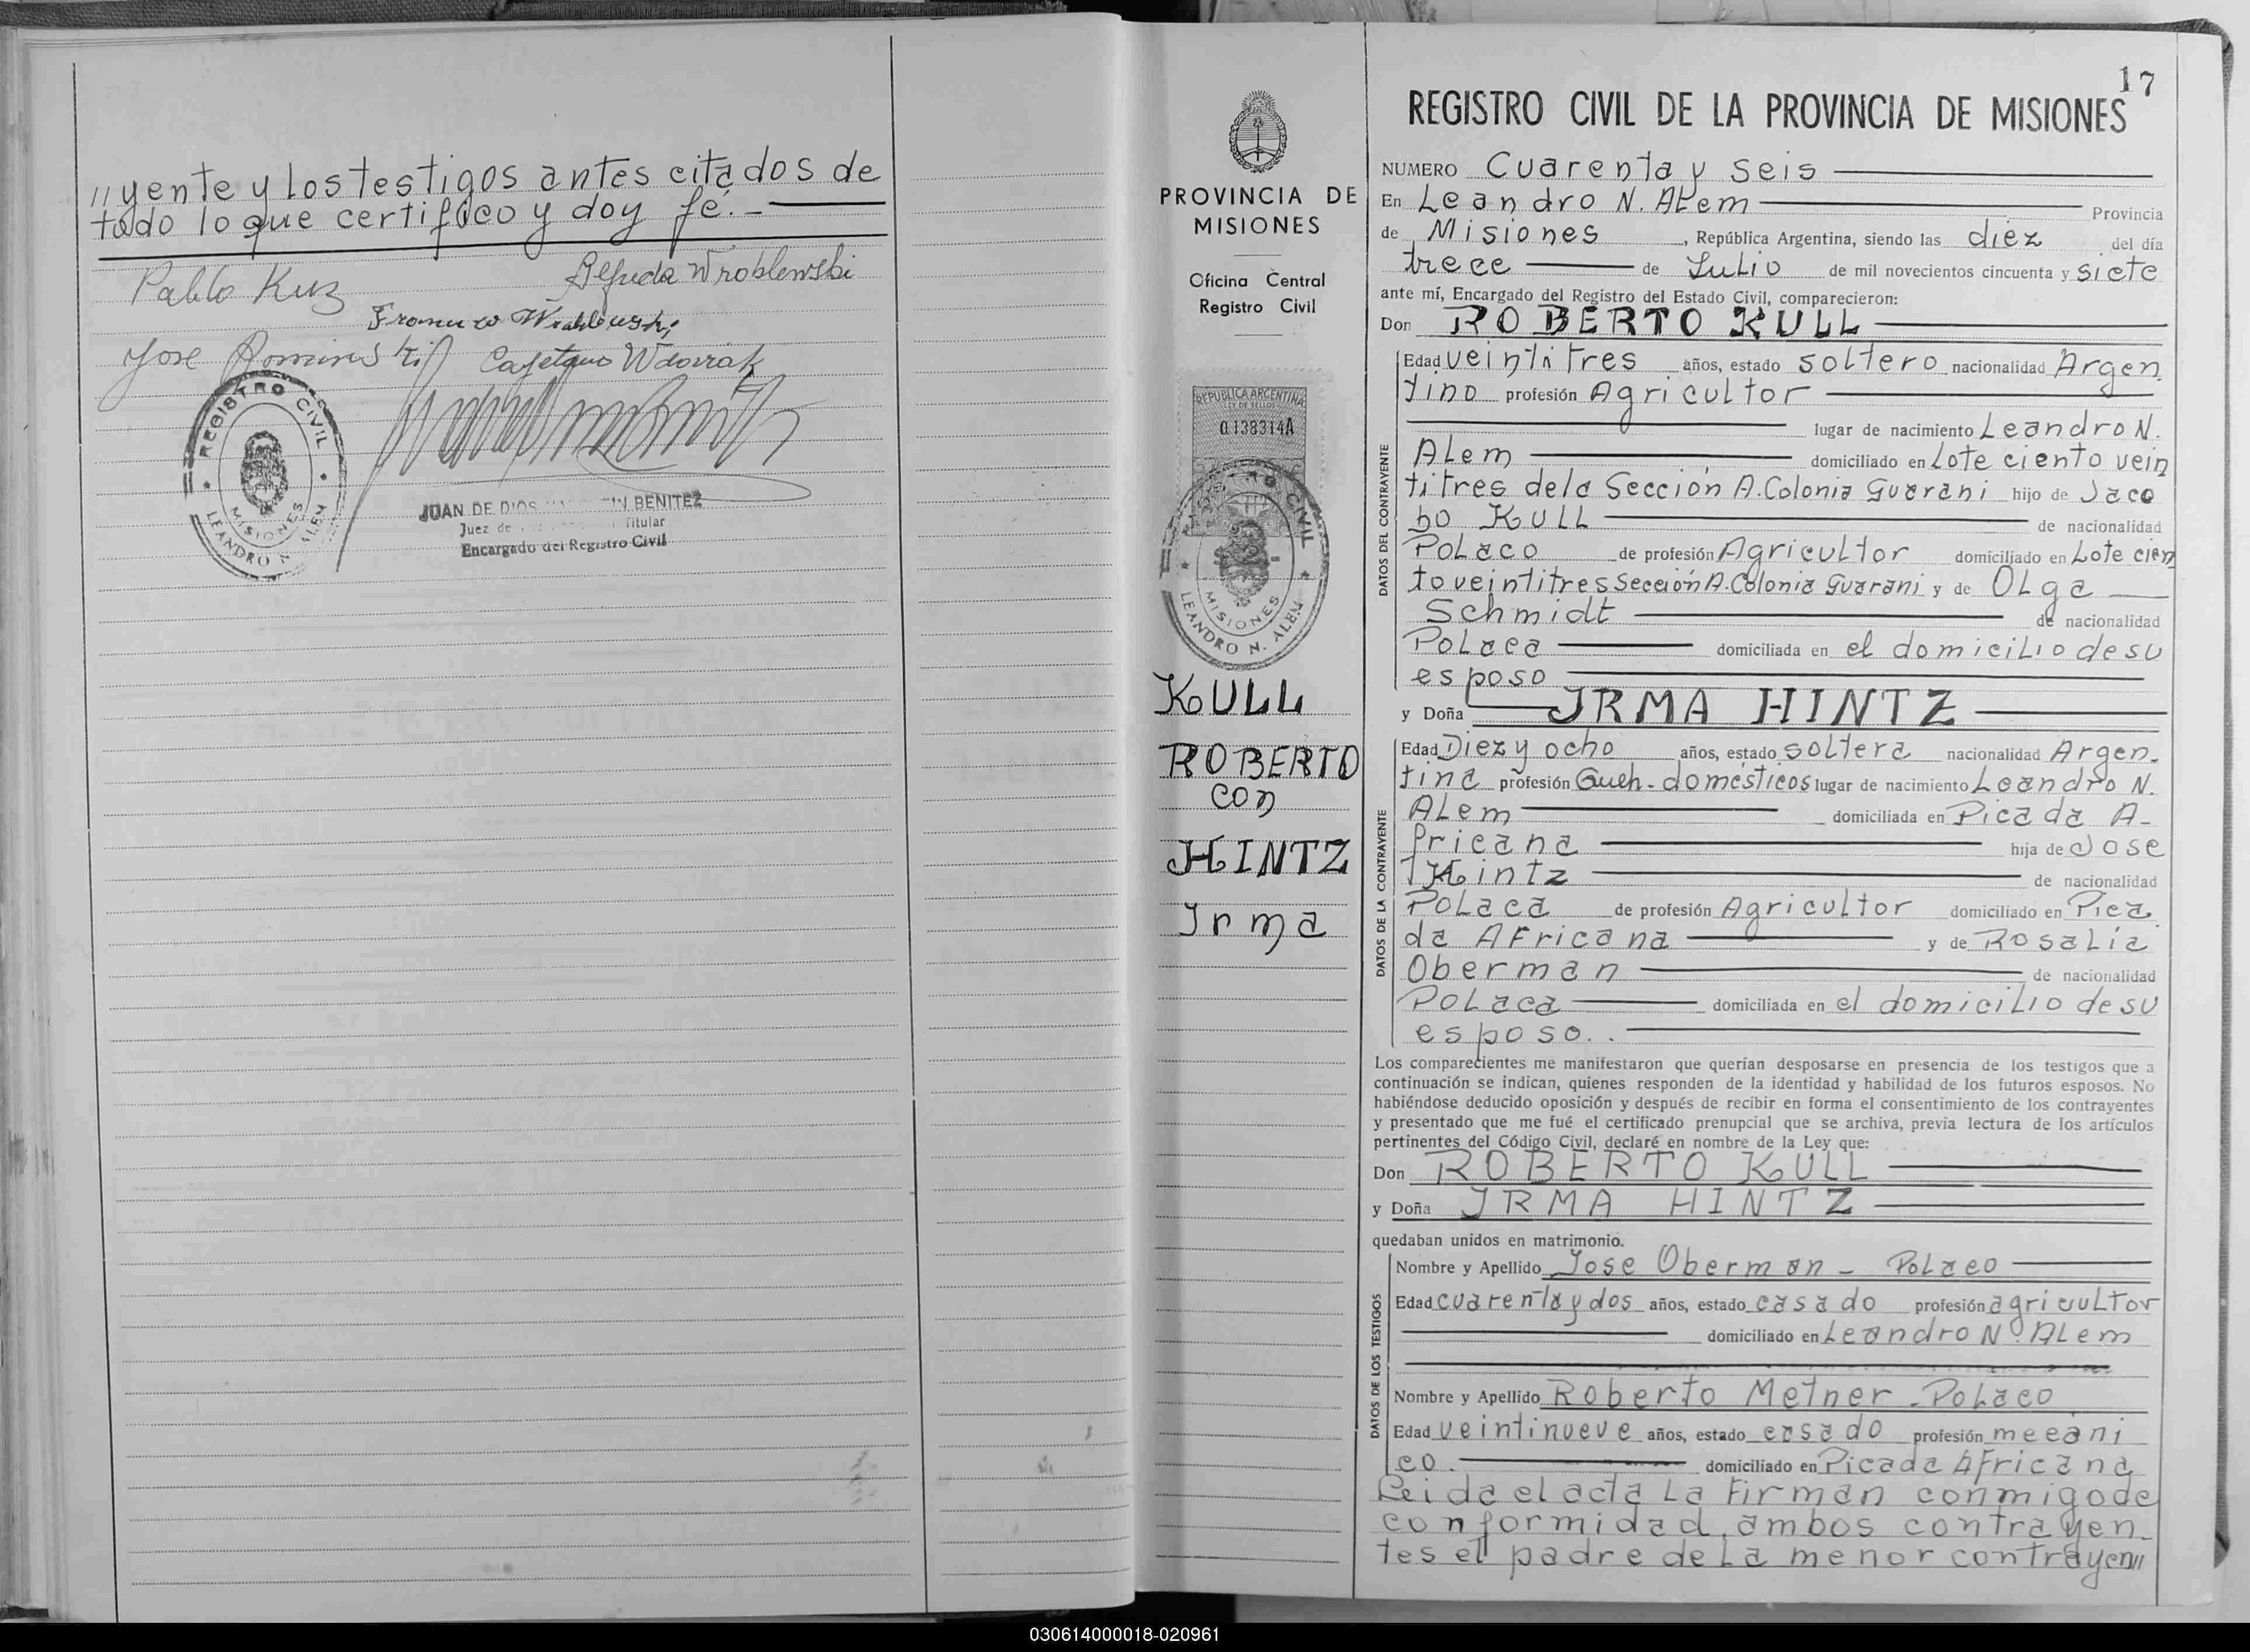 //yente y los testigos antes citados de
todo lo que certifico y doy fé.-
Pablo Kuz
Alfreda Wroblewski
Francisco Wroblewski
Jose
Cayetano Wdoviak
REGISTRO CIVIL
MISIONES
LEANDRO N. ALEM
JUAN DE DIOS BENITEZ
Juez de Titular
Encargado del Registro Civil
PROVINCIA DE
MISIONES
Oficina Central
Registro Civil
REPUBLICA ARGENTINA
LEY DE SELLOS
0138314A
REGISTRO CIVIL
MISIONES
LEANDRO N. ALEM
KULL
ROBERTO
con
HINTZ
Irma
17
REGISTRO CIVIL DE LA PROVINCIA DE MISIONES
NUMERO Cuarenta y seis
En Leandro N. Alem Provincia
de Misiones, República Argentina, siendo las diez del día
trece de Julio de mil novecientos cincuenta y siete
ante mí, Encargado del Registro del Estado Civil, comparecieron:
Don ROBERTO KULL
DATOS DEL CONTRAYENTE
Edad veintitres años, estado soltero nacionalidad Argen.
tino profesión Agricultor
lugar de nacimiento Leandro N.
Alem domiciliado en Lote ciento vein
titres de la Sección A. Colonia Guarani hijo de Jaco
bo Kull de nacionalidad
Polaco de profesión Agricultor domiciliado en Lote cien
to veintitres Sección A. Colonia Guarani y de Olga
Schmidt de nacionalidad
Polaca domiciliada en el domicilio de su
esposo
y Doña IRMA HINTZ
DATOS DE LA CONTRAYENTE
Edad Diez y ocho años, estado soltera nacionalidad Argen.
tina profesión Queh. domésticos lugar de nacimiento Leandro N.
Alem domiciliada en Picada A-
fricana hija de Jose
Hintz de nacionalidad
Polaca de profesión Agricultor domiciliado en Pica.
da Africana y de Rosalia
Oberman de nacionalidad
Polaca domiciliada en el domicilio de su
esposo..
Los comparecientes me manifestaron que querían desposarse en presencia de los testigos que a
continuación se indican, quienes responden de la identidad y habilidad de los futuros esposos. No
habiéndose deducido oposición y después de recibir en forma el consentimiento de los contrayentes
y presentado que me fué el certificado prenupcial que se archiva, previa lectura de los artículos
pertinentes del Código Civil, declaré en nombre de la Ley que:
Don ROBERTO KULL
y Doña IRMA HINTZ
quedaban unidos en matrimonio.
DATOS DE LOS TESTIGOS
Nombre y Apellido Jose Oberman - Polaco
Edad cuarenta y dos años, estado casado profesión agricultor
domiciliado en Leandro N. Alem
Nombre y Apellido Roberto Metner - Polaco
Edad veintinueve años, estado casado profesión mecani
co. domiciliado en Picada Africana
Leida el acta la firman conmigo de
conformidad, ambos contrayen-
tes el padre de la menor contrayen//
030614000018-020961